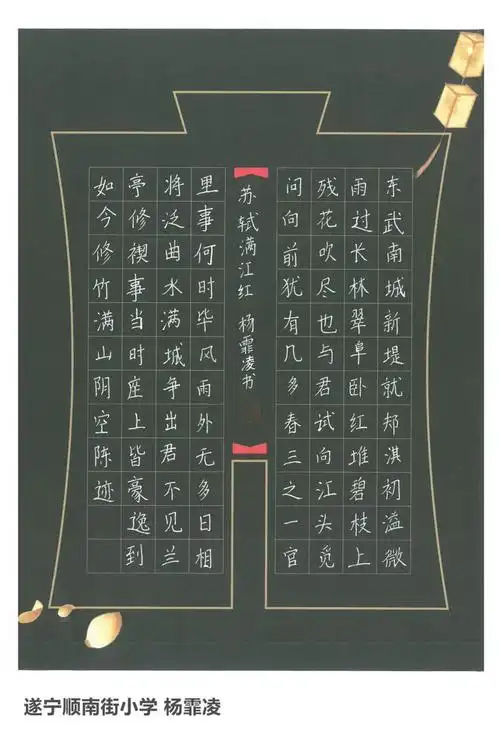 东武南城新堤就郏淇初溢微
雨过长林翠阜卧红堆碧枝上
残花吹尽也与君试向江头觅
问向前犹有几多春三之一官
苏轼满江红 杨霏凌书
里事何时毕风雨外无多日相
将泛曲水满城争出君不见兰
亭修禊事当时座上皆豪逸到
如今修竹满山阴空陈迹
遂宁顺南街小学 杨霏凌